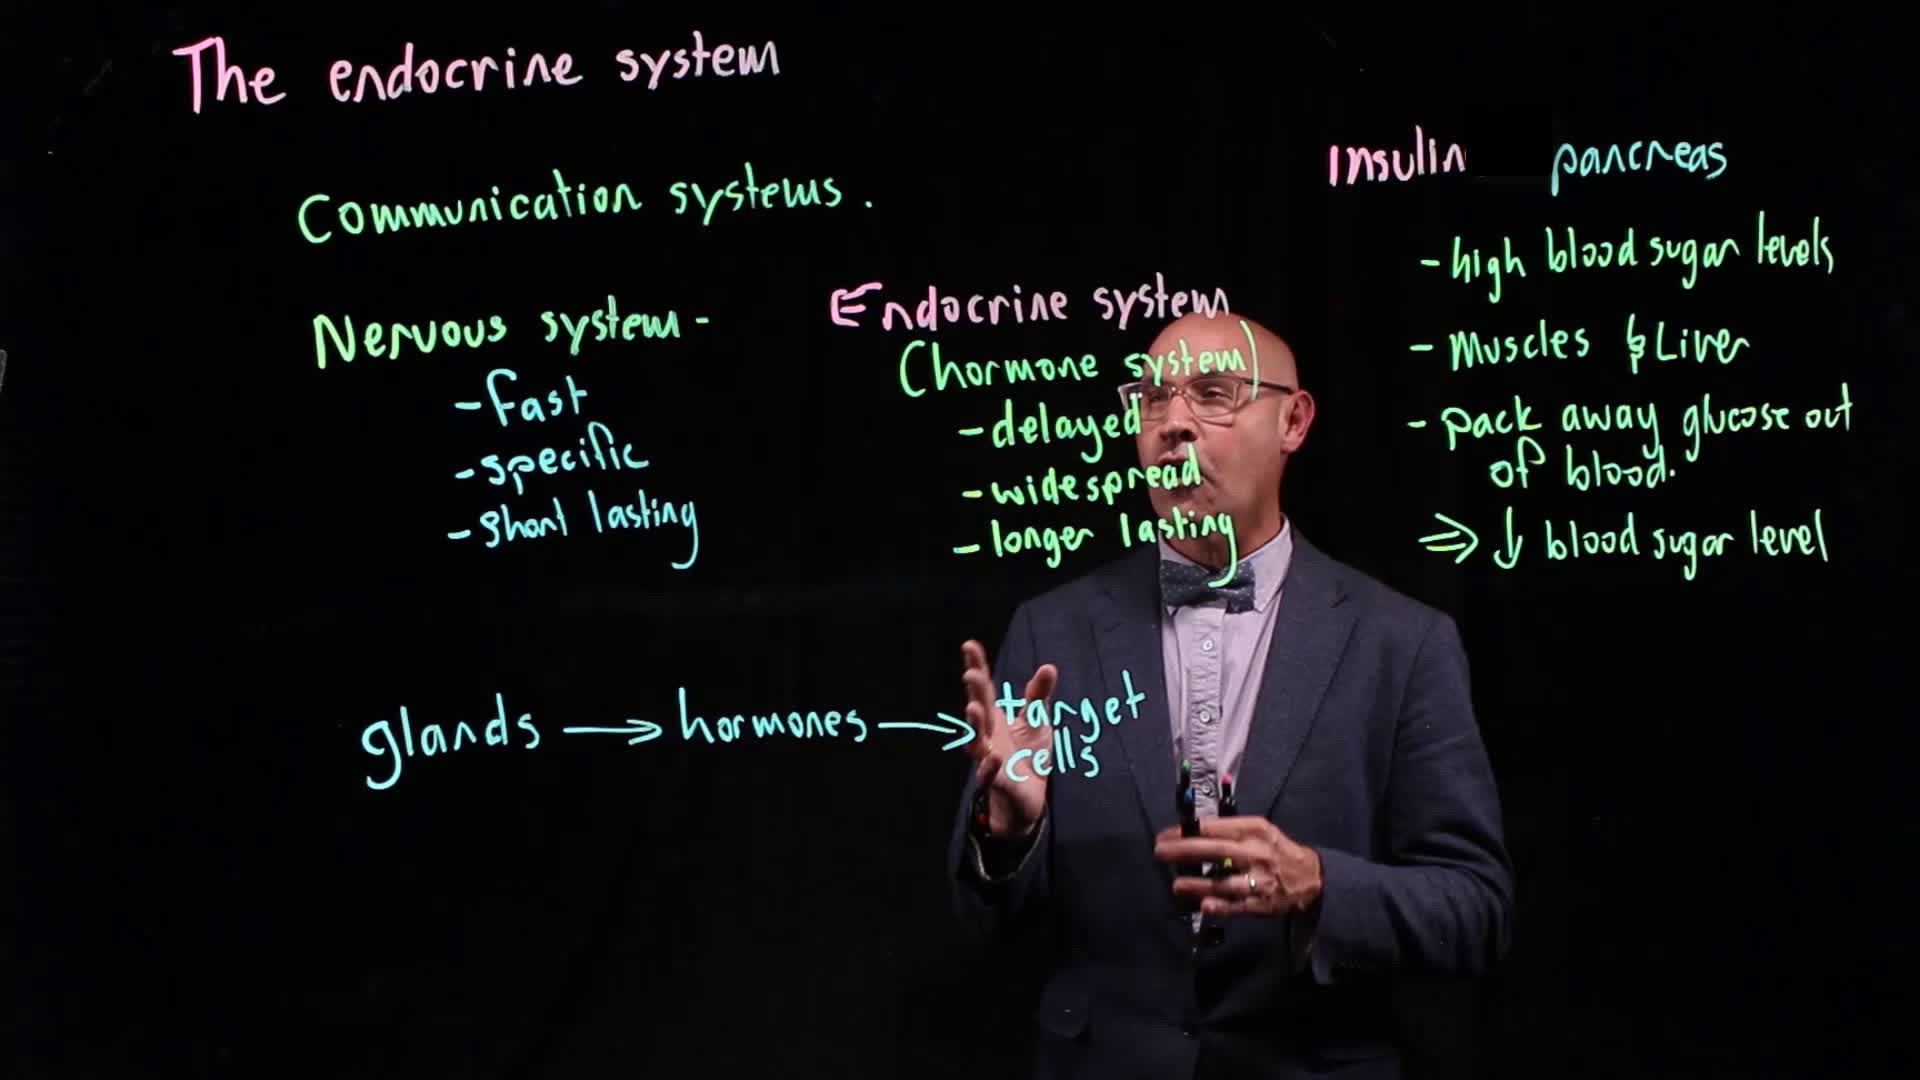 The endocrine system
Communication systems.
Nervous system -
- fast
- specific
- short lasting
Endocrine system
(hormone system)
- delayed
- widespread
- longer lasting
glands → hormones → target
cells
Insulin pancreas
- high blood sugar levels
- Muscles & Liver
- pack away glucose out
of blood.
⇒ ↓ blood sugar level